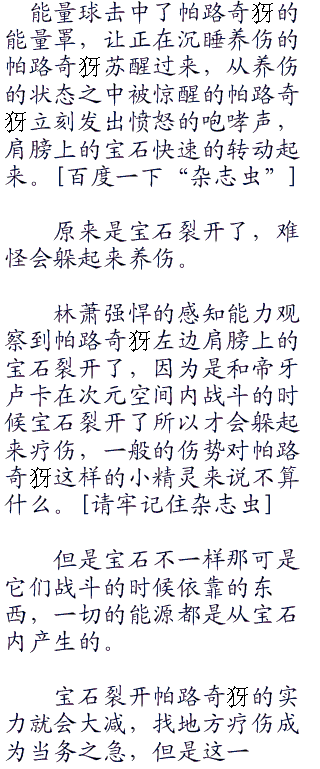 能量球击中了帕路奇犽的
能量罩，让正在沉睡养伤的
帕路奇犽苏醒过来，从养伤
的状态之中被惊醒的帕路奇
犽立刻发出愤怒的咆哮声，
肩膀上的宝石快速的转动起
来。[百度一下“杂志虫”]
原来是宝石裂开了，难
怪会躲起来养伤。
林萧强悍的感知能力观
察到帕路奇犽左边肩膀上的
宝石裂开了，因为是和帝牙
卢卡在次元空间内战斗的时
候宝石裂开了所以才会躲起
来疗伤，一般的伤势对帕路
奇犽这样的小精灵来说不算
什么。[请牢记住杂志虫]
但是宝石不一样那可是
它们战斗的时候依靠的东
西，一切的能源都是从宝石
内产生的。
宝石裂开帕路奇犽的实
力就会大减，找地方疗伤成
为当务之急，但是这一